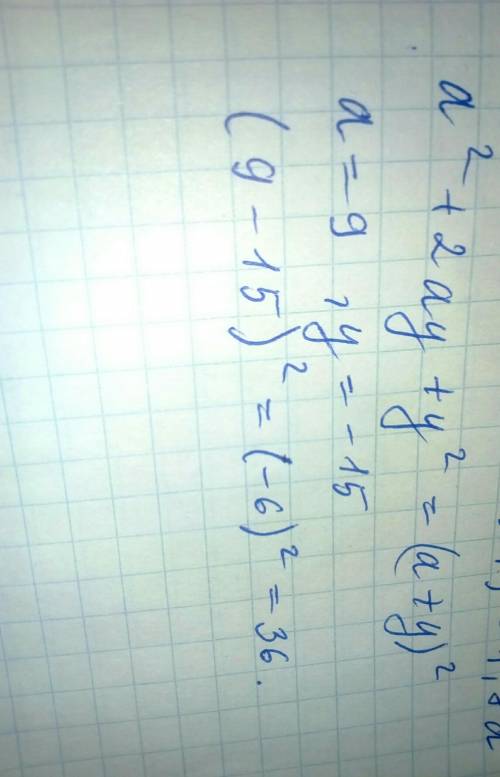 a² + 2ay + y² = (a+y)²
a = 9, y = -15
(9 - 15)² = (-6)² = 36.